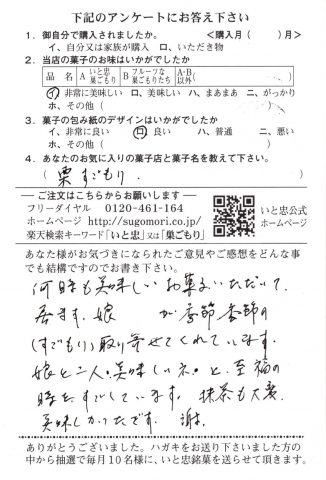 下記のアンケートにお答え下さい
1. 御自分で購入されましたか。 <購入月(　　)月>
イ、自分又は家族が購入 ロ、いただき物
2. 当店の菓子のお味はいかがでしたか
品 名 A いと忠巣ごもり B フルーツな巣ごもりたち A・B以外(　　)
イ、非常に美味しい ロ、美味しい ハ、まあまあ ニ、がっかり
ホ、その他(　　)
3. 菓子の包み紙のデザインはいかがでしたか
イ、非常に良い ロ、良い ハ、普通 ニ、悪い
ホ、その他(　　)
4. あなたのお気に入りの菓子店と菓子名を教えて下さい。
(栗すごもり.)
―ご注文はこちらからお願いします―
フリーダイヤル 0120-461-164
ホームページ http://sugomori.co.jp/
楽天検索キーワード「いと忠」又は「巣ごもり」
いと忠公式
ホームページ
あなた様がお気づきになられたご意見やご感想をどんな事
でも結構ですのでお書き下さい。
何時も美味しいお菓子いただいて
居ます、娘 が季節季節の
(すごもり)取り寄せてくれています.
娘と二人.美味しいネ。と、至福の
時をすごしています. 抹茶も大変
美味しかったです.
ありがとうございました。ハガキをお送り下さいました方の
中から抽選で毎月10名様に、いと忠銘菓を送らせて頂きます。